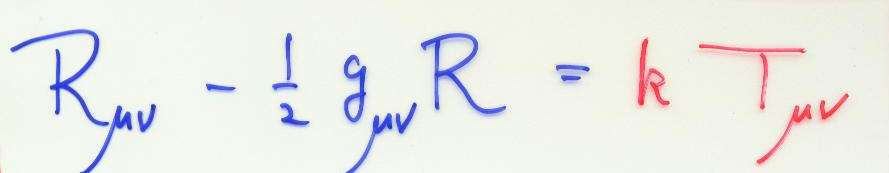 R_μν - 1/2 g_μν R = k T_μν